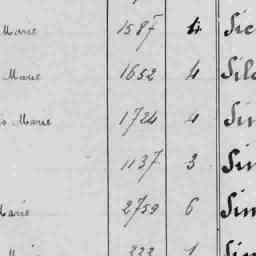 Marie 1587 4 Sic
Marie 1652 4 Sil
Marie 1724 4 Sin
1137 3 Sin
Marie 2759 6 Sim
222 1 Sim